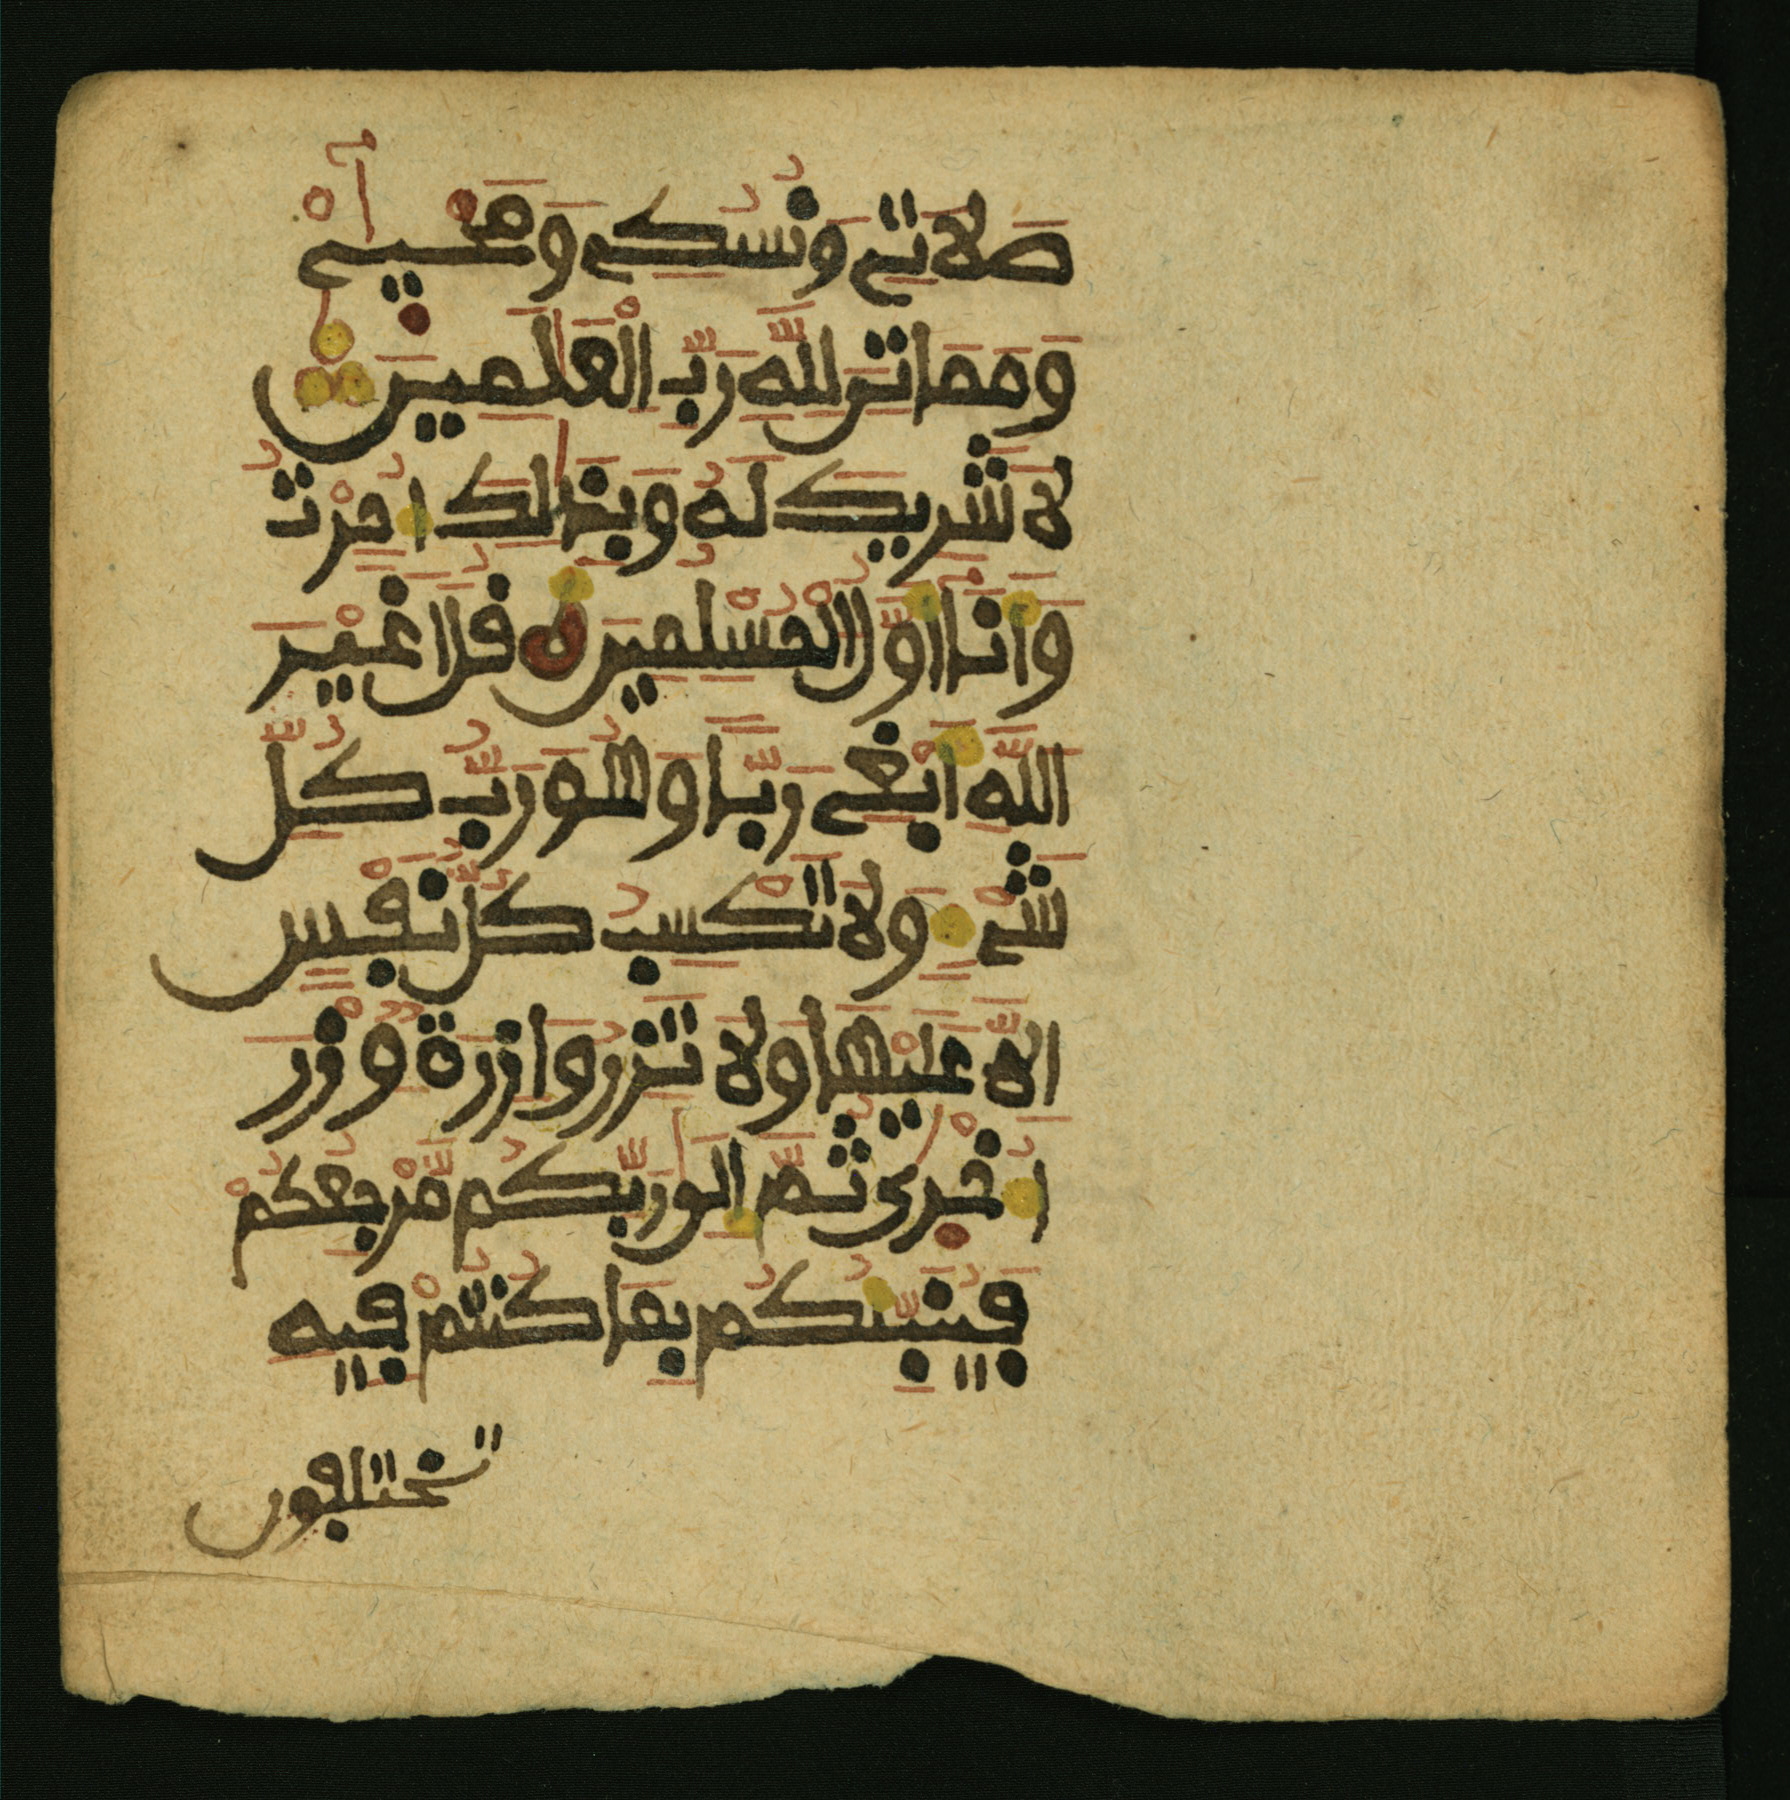 صَلَاتِے وَنُسُكِے وَمَحْيَآےْ
وَمَمَاتِے لِلَّهِ رَبِّ الْعَٰلَمِينَ
لَا شَرِيكَ لَهُ وَبِذَٰلِكَ اُمِرْتُ
وَأَنَا أَوَّلُ الْمُسْلِمِينَ قُلَ اَغَيْرَ
اَللَّهِ أَبْغِے رَبّاً وَهُوَ رَبُّ كُلِّ
شَےْءٍ وَلَا تَكْسِبُ كُلُّ نَفْسٍ
اِلَّا عَلَيْهَا وَلَا تَزِرُ وَازِرَةٌ وِزْرَ
أُخْرَىٰ ثُمَّ إِلَىٰ رَبِّكُم مَّرْجِعُكُمْ
فَيُنَبِّئُكُم بِمَا كُنتُمْ فِيهِ
تختلفون